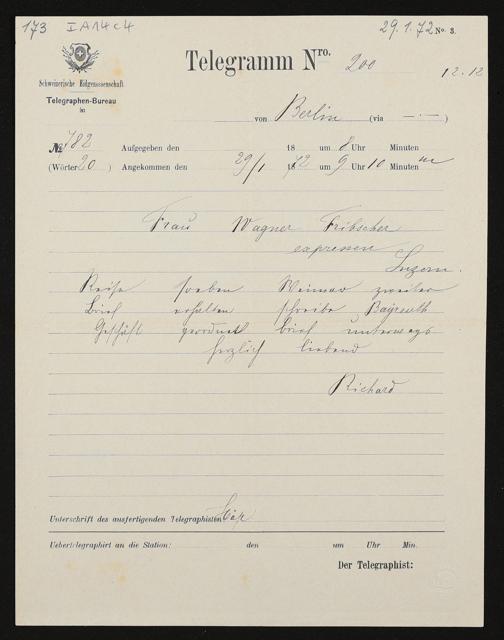 173 I A 14 c 4
29.1.72 No. 3.
Telegramm Nro. 200
12.12
Schweizerische Eidgenossenschaft
Telegraphen-Bureau
in
von Berlin (via — — )
No. 782 Aufgegeben den 18 um 8 Uhr Minuten
(Wörter 20 ) Angekommen den 29/1 1872 um 9 Uhr 10 Minuten
Frau Wagner Tribschen
expressen
Luzern.
Reise soeben Weimar zweiter
Brief erhalten schreibe Bayreuth
Geschäft geordnet brief unterwegs
herzlich liebend
Richard
Unterschrift des ausfertigenden Telegraphisten
Uebertelegraphirt an die Station: den um Uhr Min.
Der Telegraphist: